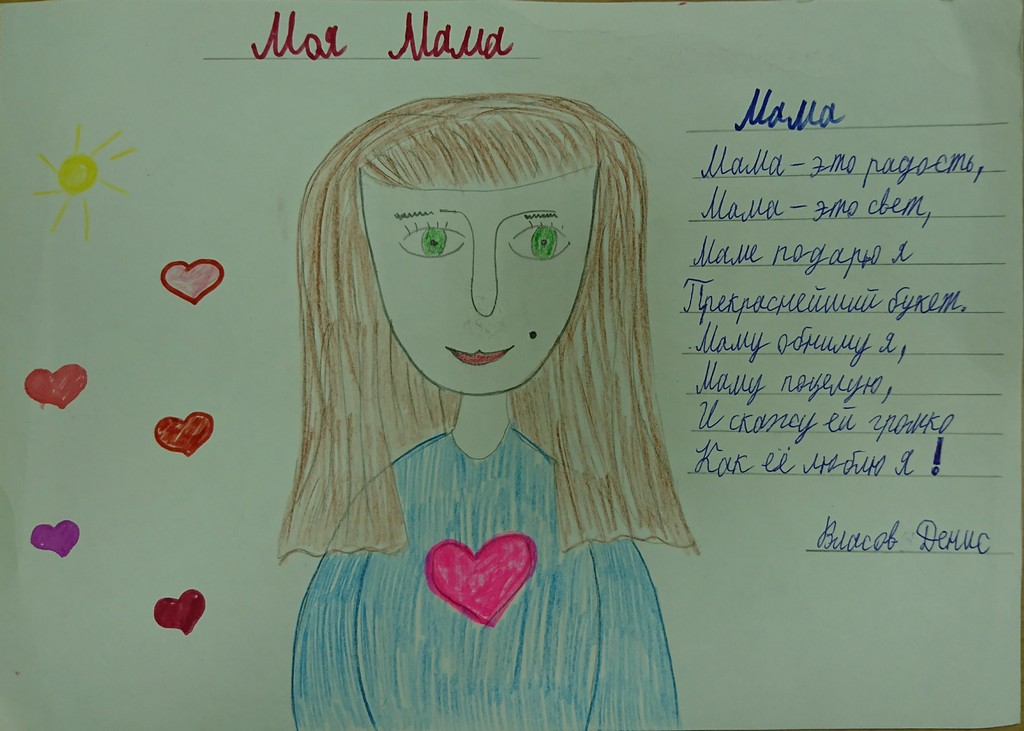 Моя Мама
Мама
Мама – это радость,
Мама – это свет,
Маме подарю я
Прекраснейший букет.
Маму обниму я,
Маму поцелую,
И скажу ей громко
Как её люблю я!
Власов Денис